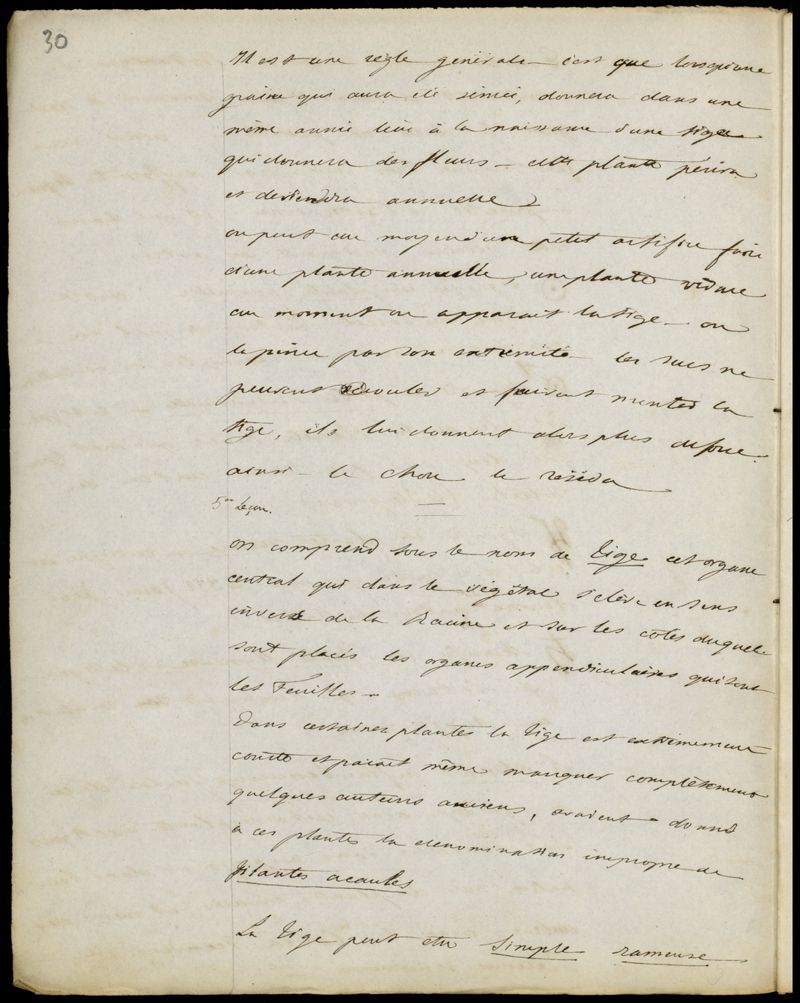 30
Il est une règle générale c'est que lorsqu'une
graine qui aura été semée, donnera dans une
même année lieu à la naissance d'une tige
qui donnera des fleurs – cette plante périra
et deviendra annuelle
on peut au moyen d'un petit artifice faire
d'une plante annuelle, une plante vivace
au moment où apparait la tige – on
la pince par son extrémité les sucs ne
peuvent s'écouler et faisant monter la
tige, ils lui donnent alors plus de force.
ainsi – le chou le réséda
5me Leçon.
On comprend sous le nom de Tige cet organe
central qui dans le végétal s'élève en sens
inverse de la Racine et sur les côtés duquel
sont placés les organes appendiculaires qui sont
les Feuilles –
Dans certaines plantes la Tige est extrêmement
courte et parait même manquer complètement
quelques auteurs anciens, avaient donné
à ces plantes la dénomination impropre de
Plantes acaules
La Tige peut être simple rameuse